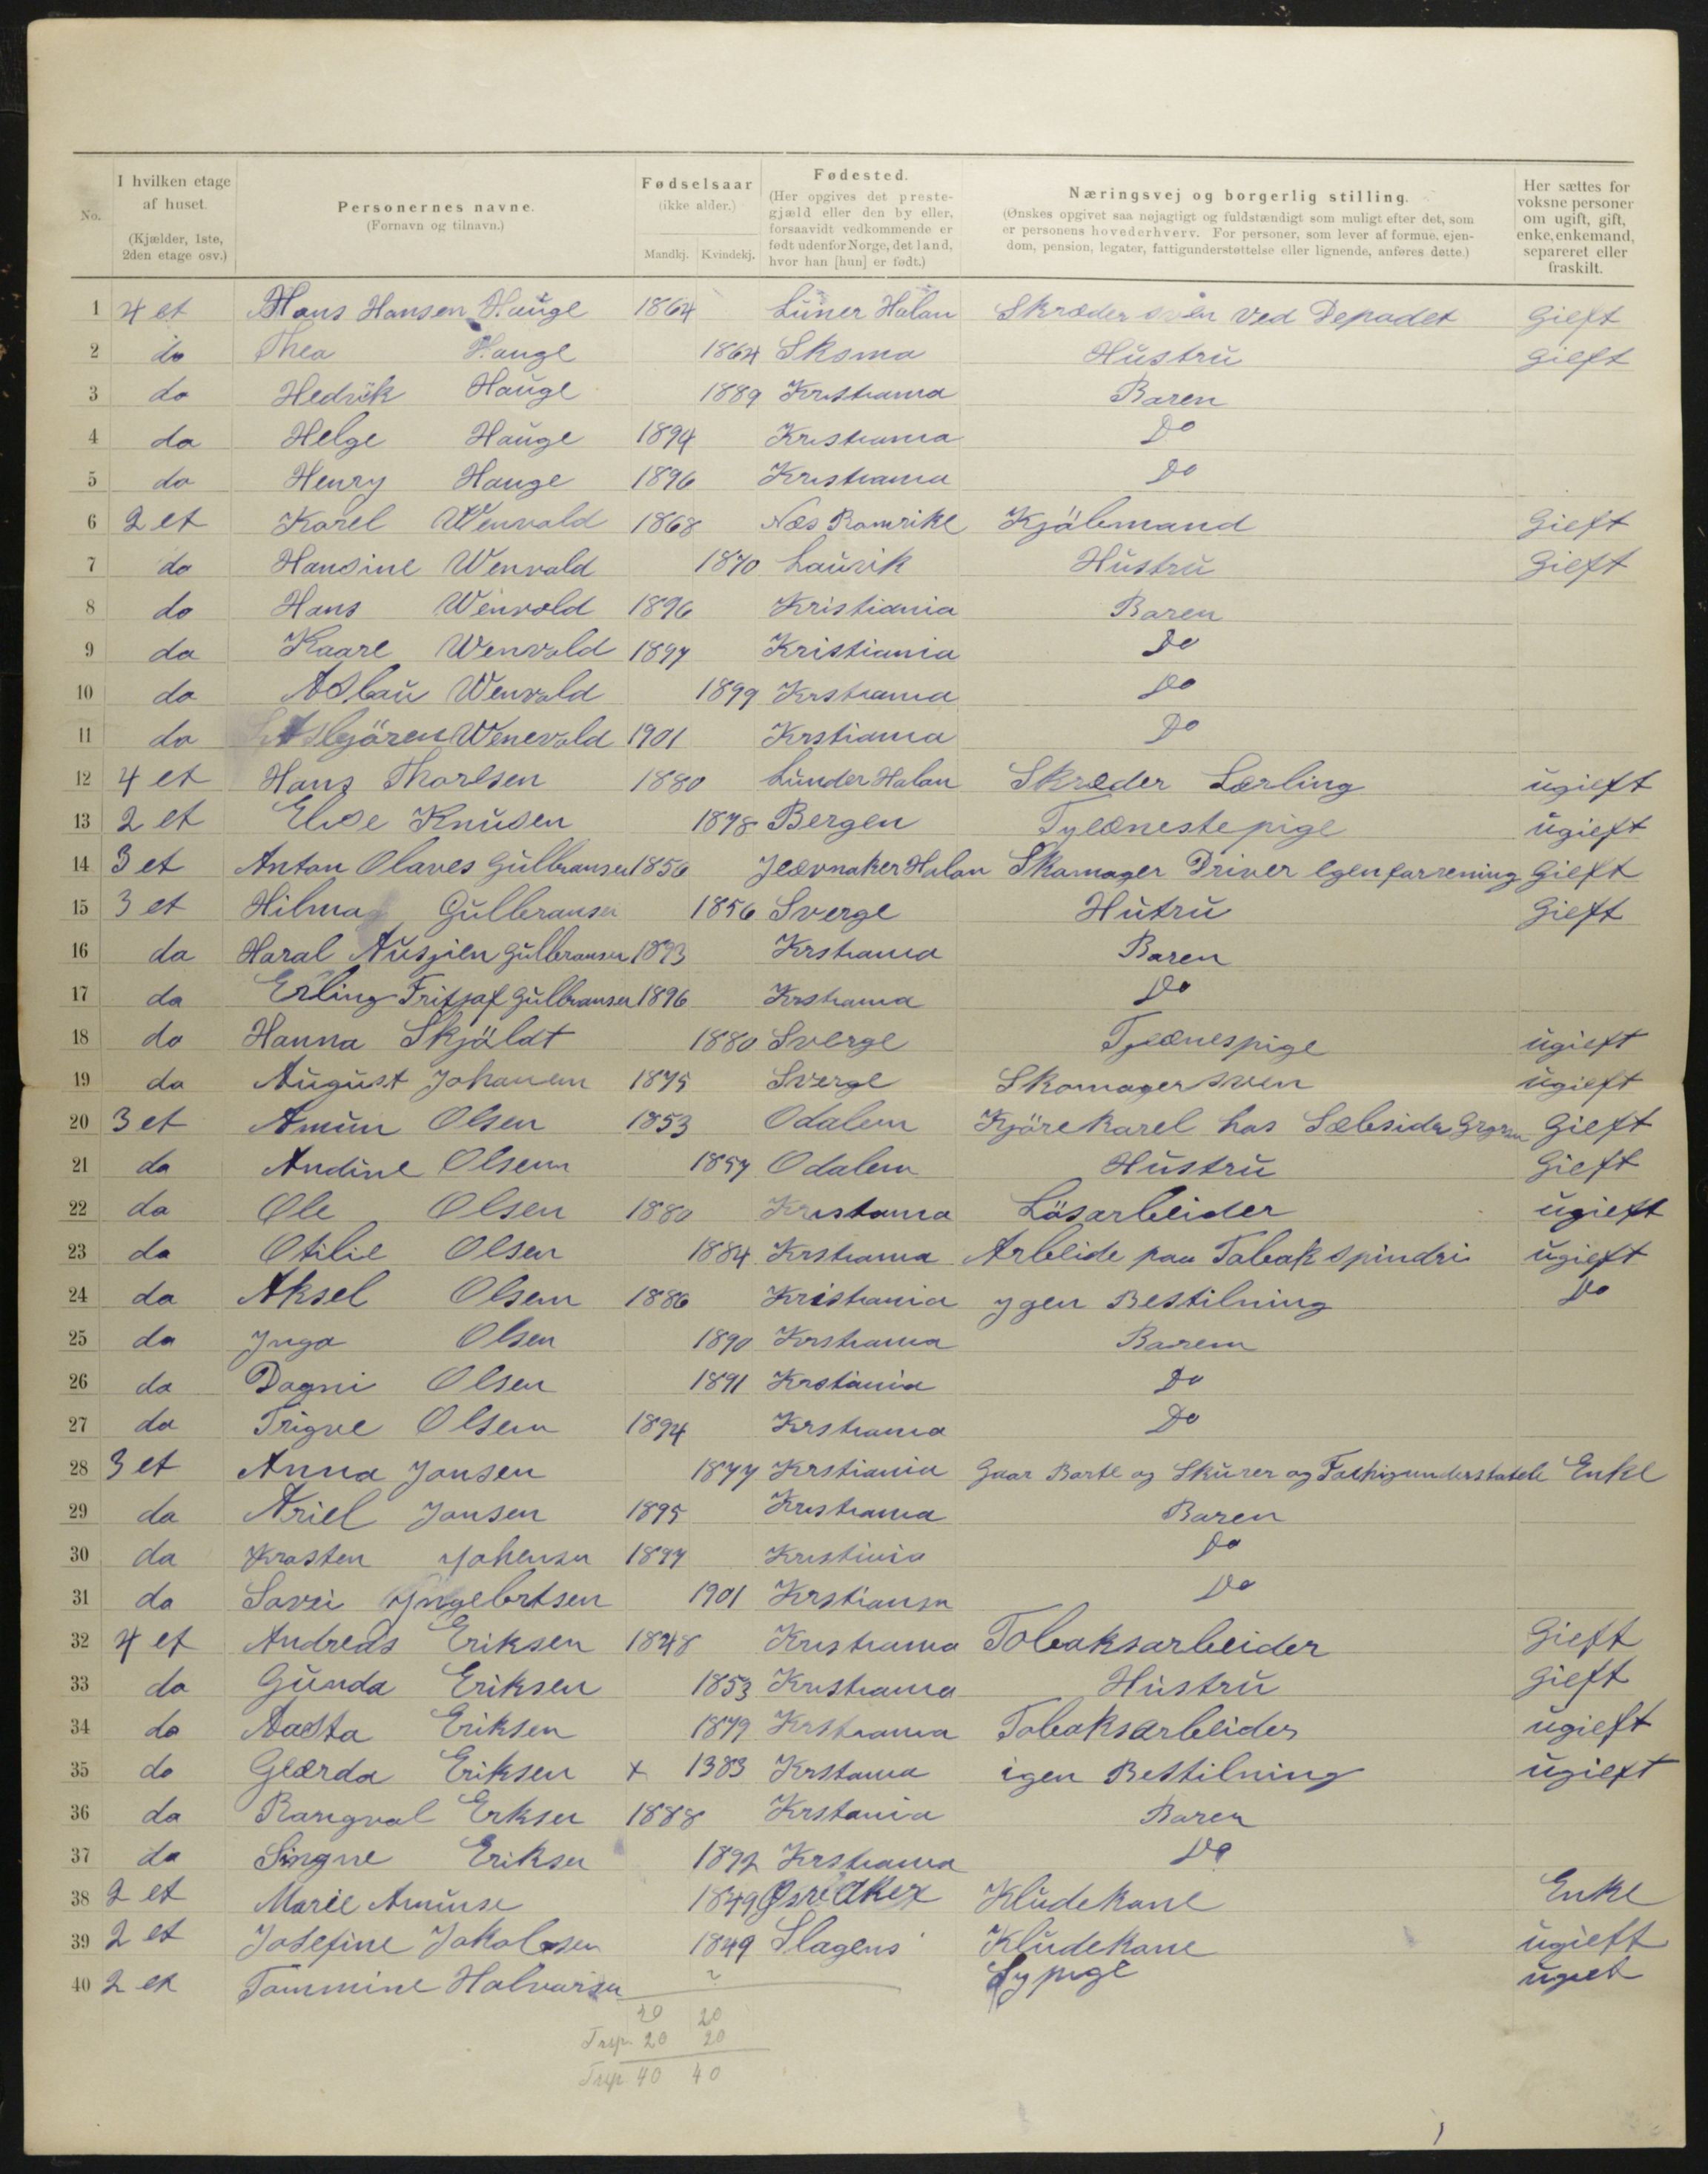 No.
I hvilken etage af huset. (Kjælder, 1ste, 2den etage osv.)
Personernes navne. (Fornavn og tilnavn.)
Fødselsaar (ikke alder.) Mandkj. Kvindekj.
Fødested. (Her opgives det prestegjæld eller den by eller, forsaavidt vedkommende er født udenfor Norge, det land, hvor han [hun] er født.)
Næringsvej og borgerlig stilling. (Ønskes opgivet saa nøjagtigt og fuldstændigt som muligt efter det, som er personens hovederhverv. For personer, som lever af formue, ejendom, pension, legater, fattigunderstøttelse eller lignende, anføres dette.)
Her sættes for voksne personer om ugift, gift, enke, enkemand, separeret eller fraskilt.
1 4 et Hans Hansen Hauge 1864 Luner Halan Skræder sven ved Depodet Gieft
2 do Thea Hauge 1864 Skoma Hustru gieft
3 do Hedvik Hauge 1889 Kristiania Baren
4 do Helge Hauge 1894 Kristiania Do
5 do Henry Hauge 1896 Kristiania Do
6 2 et Karel Wenvold 1868 Næs Romrike Kjöbmand Gieft
7 do Hansine Wenvald 1870 Laurik Hustru Gieft
8 do Hans Wenvold 1896 Kristiania Baren
9 do Kaare Wenvold 1897 Kristiania Do
10 do Aslau Wenvald 1899 Krstiania Do
11 do Asbjören Wenevald 1901 Krstiania Do
12 4 et Hans Thorlsen 1880 Lunder Halan Skræder Lærling ugieft
13 2 et Elise Knusen 1878 Bergen Tyeænestepige ugieft
14 3 et Anton Olaves Gulbransen 1856 Jeævnaker Halan Skomager Driver egen farrening Gieft
15 3 et Hilma Gulbransen 1856 Sverge Hutru Gieft
16 da Haral Ausjien Gulbransen 1893 Krstiania Baren
17 da Erling Fritjaf Gulbransen 1896 Krstiania Do
18 do Hanna Skjöldt 1880 Sverge Tjeænespige ugieft
19 da August Johansen 1875 Sverge Skomager sven ugieft
20 3 et Amun Olsen 1853 Odalen Kjörekarel hos Gieft
21 da Andine Olsen 1857 Odalen Hustru Gieft
22 da Ole Olsen 1880 Kristania Lösarbeider ugieft
23 da Otilie Olsen 1884 Krstiania Arbeide paa Tabak spindri ugieft
24 da Aksel Olsen 1886 Kristiania ygen Bestilning Do
25 da Ynga Olsen 1890 Krstiania Baren
26 da Dagni Olsen 1891 Krstiania Do
27 da Trigve Olsen 1894 Krstiania Do
28 3 et Anna Jansen 1877 Krstiania Gaar Borte og Skurer og Enke
29 da Ariel Jansen 1895 Kristiania Baren
30 da Krasten Johensen 1897 Kristinia Do
31 da Yngebrtsen 1901 Do
32 4 et Andreas Eriksen 1848 Kristiania Tobaksarbeider Gieft
33 da Gunda Eriksen 1853 Kristiania Hustru gieft
34 do Aasta Eriksen 1879 Krstiania Tobaksarbeider ugieft
35 do Geærda Eriksen x 1383 Krstania igen Bestilning ugieft
36 da Rangval Erksen 1888 Krstania Baren
37 da Singne Eriksen 1892 Krstiania Do
38 2 et Marie Amunse 1849 Øsre Aker Kludekone Enke
39 2 et Josefine Jakobsen 1849 Slagens Kludekone ugieft
40 2 et Tammine Halvarsen Sypige ugiet
20 20
Trsp. 20 20
Trsp 40 40